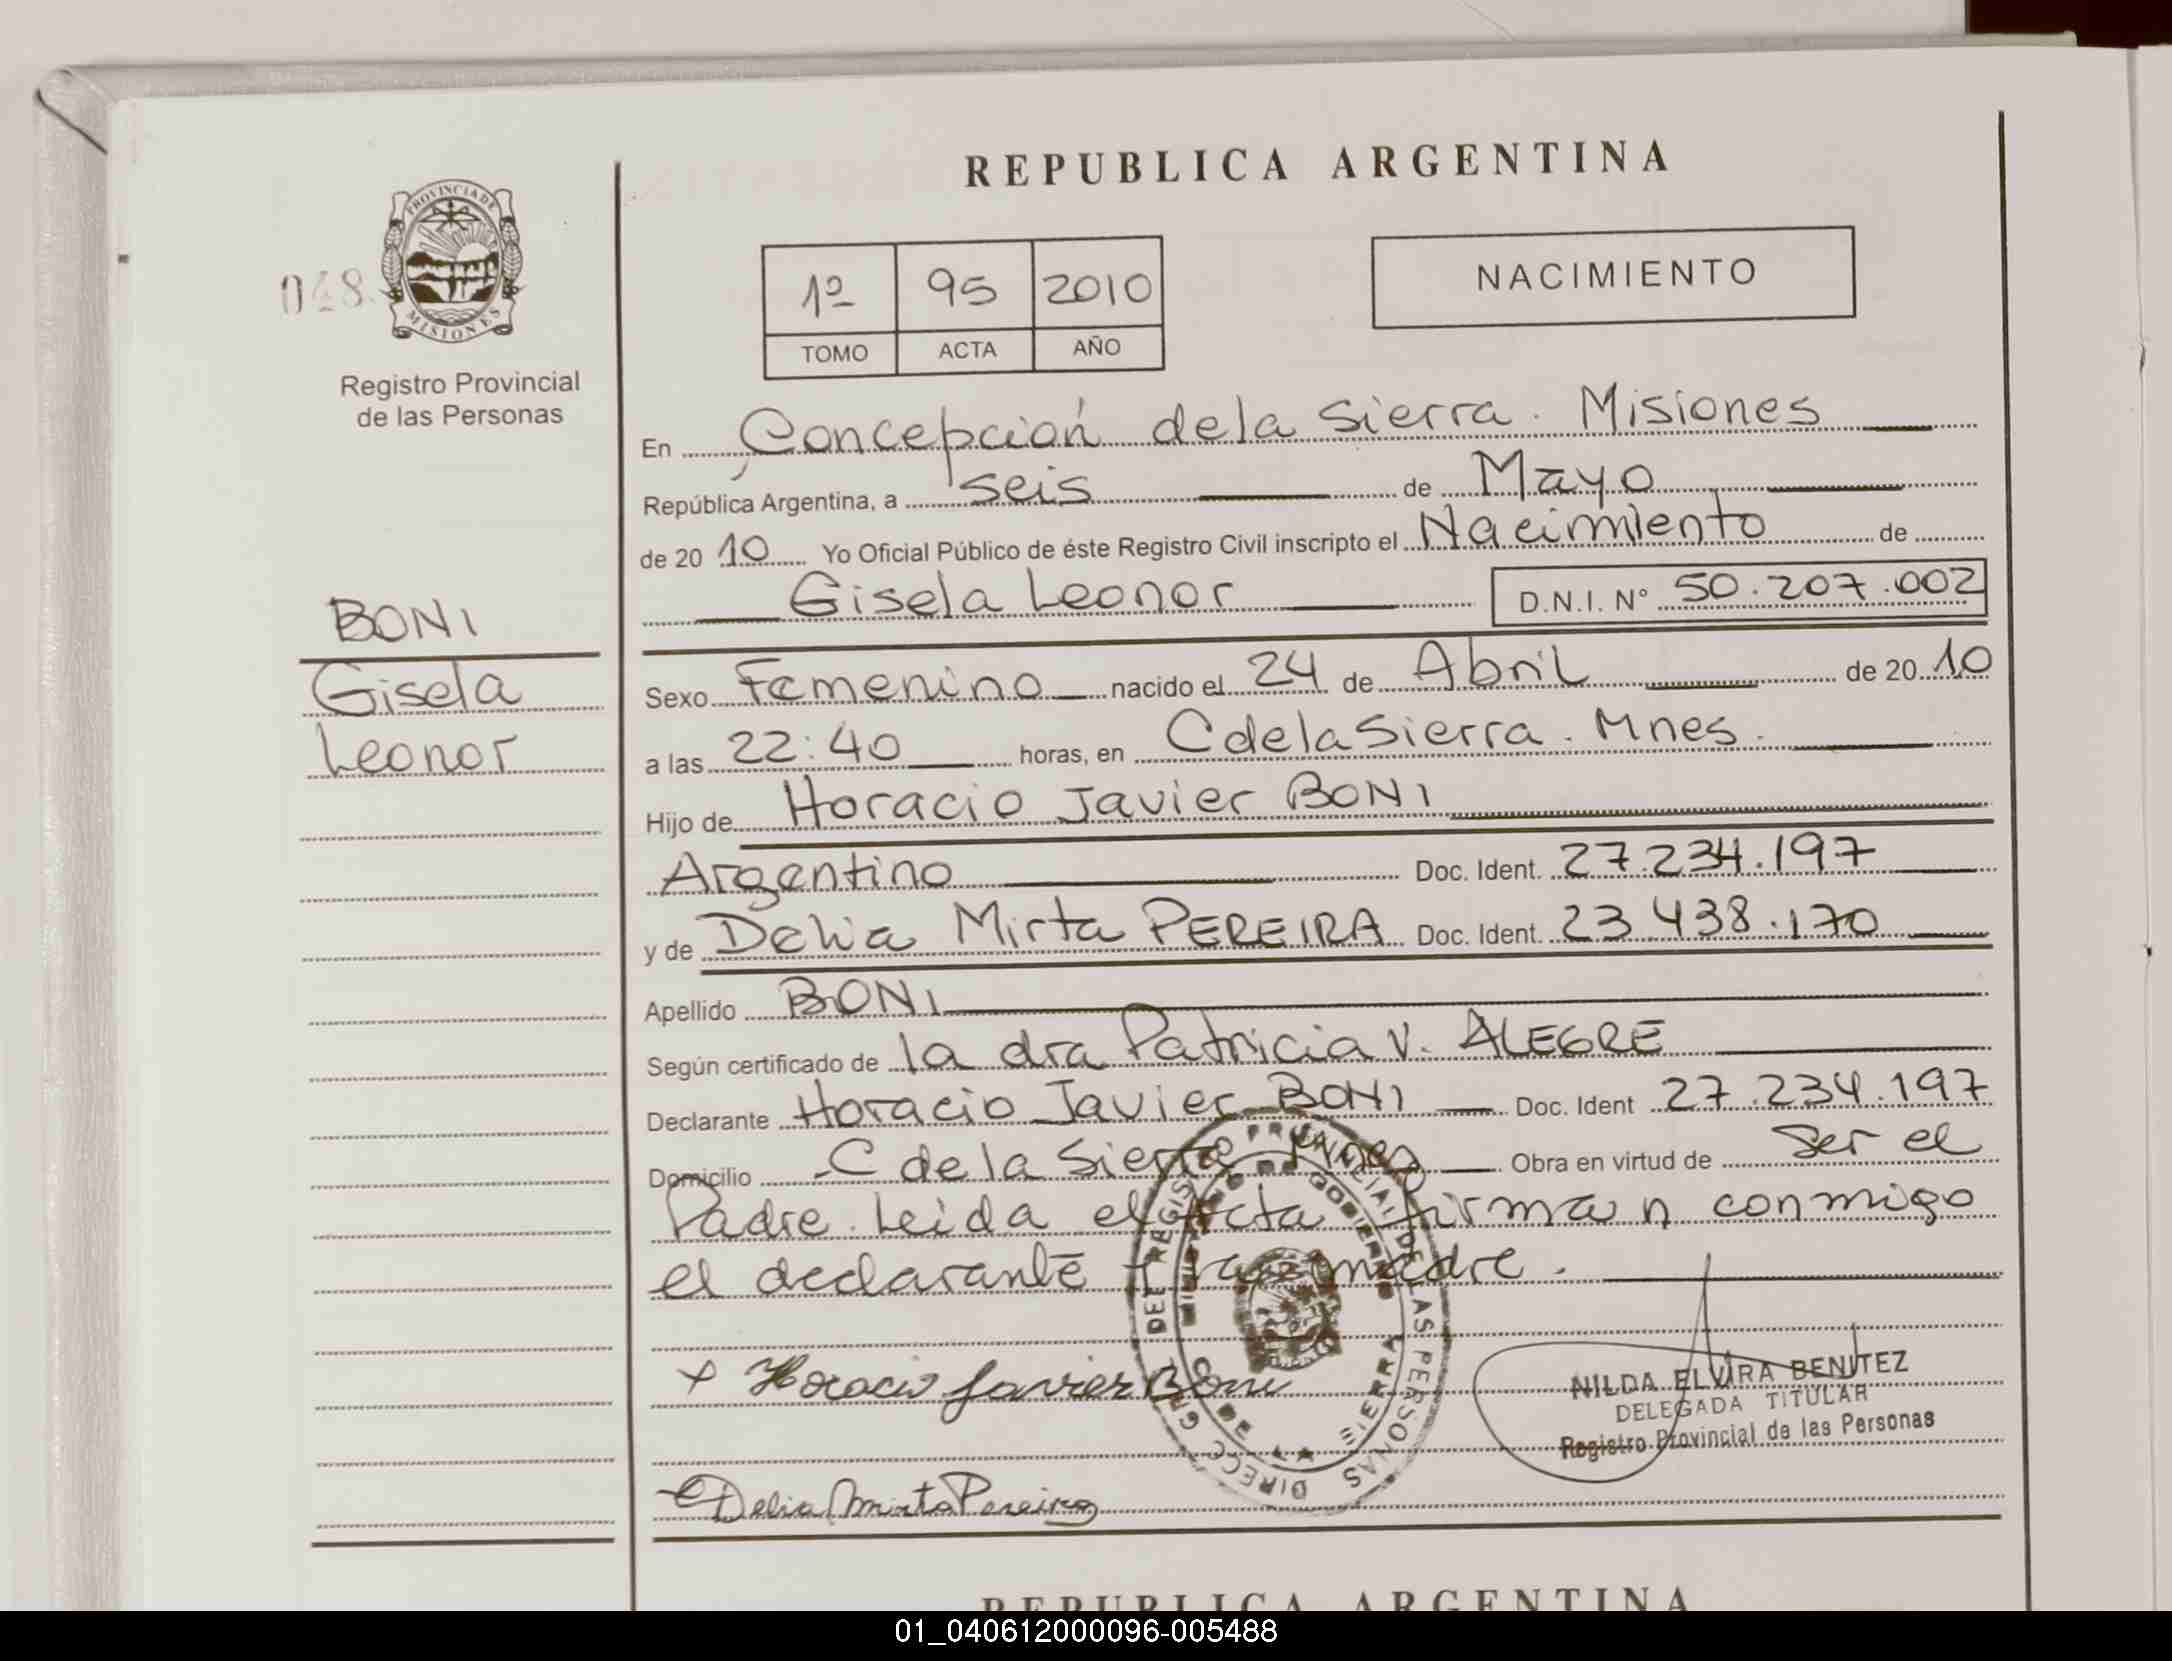 REPUBLICA ARGENTINA
PROVINCIA DE MISIONES
048
Registro Provincial
de las Personas
1º 95 2010
TOMO ACTA AÑO
NACIMIENTO
En Concepción de la Sierra. Misiones
República Argentina, a seis de Mayo
de 20 10 Yo Oficial Público de éste Registro Civil inscripto el Nacimiento de
Gisela Leonor D.N.I. Nº 50.207.002
BONI
Gisela
Leonor
Sexo Femenino nacido el 24 de Abril de 20 10
a las 22:40 horas, en C de la Sierra. Mnes.
Hijo de Horacio Javier BONI
Argentino Doc. Ident. 27.234.197
y de Delia Mirta PEREIRA Doc. Ident. 23.438.170
Apellido BONI
Según certificado de la dra Patricia V. ALEGRE
Declarante Horacio Javier BONI Doc. Ident 27.234.197
Domicilio C de la Sierra Mnes Obra en virtud de Ser el
Padre. Leida el Acta firman conmigo
el declarante y la madre.
+ Horacio Javier Boni
Delia Mirta Pereira
DIRECC. GRAL. DEL REGISTRO PROVINCIAL DE LAS PERSONAS
GOBIERNO
C. DE SIERRA
NILDA ELVIRA BENITEZ
DELEGADA TITULAR
Registro Provincial de las Personas
REPUBLICA ARGENTINA
01_040612000096-005488